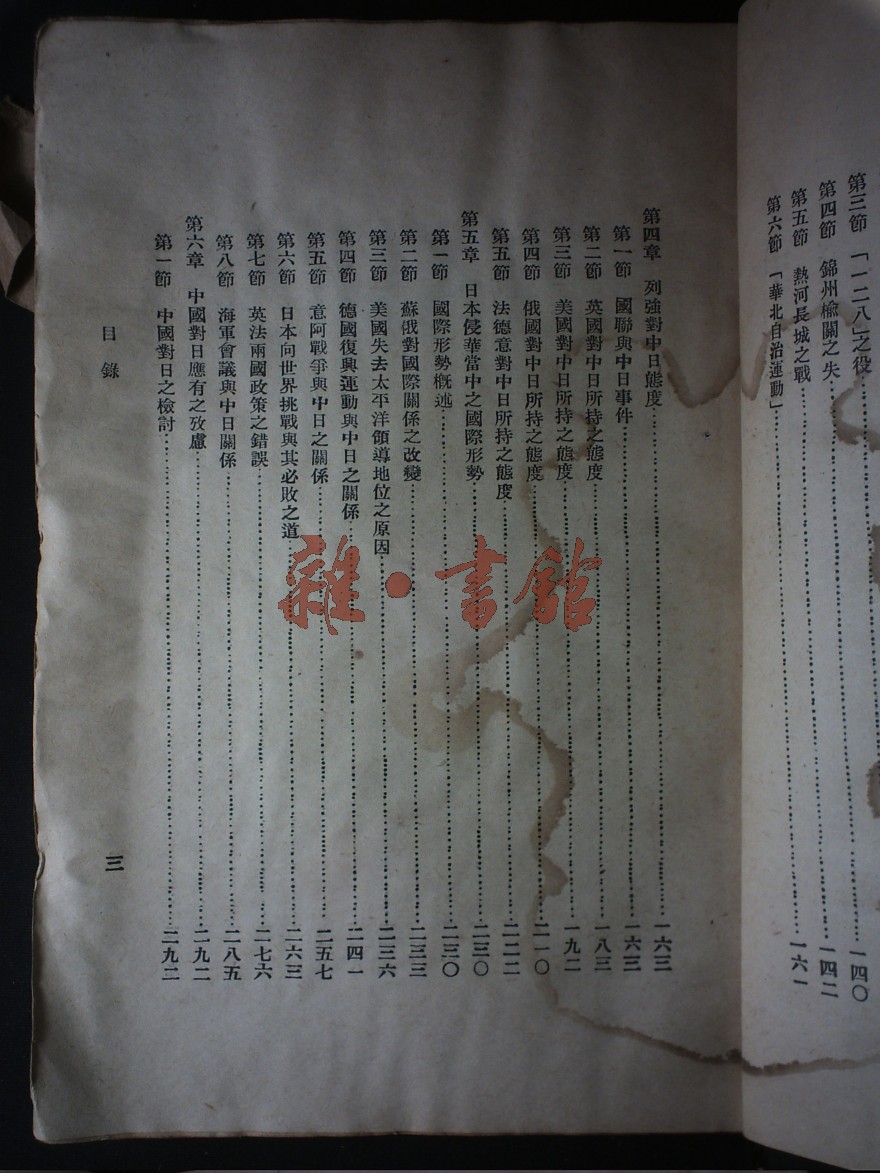 第三節 「一二八」之役 一四〇
第四節 錦州楡關之失 一四二
第五節 熱河長城之戰 一六一
第六節 「華北自治運動」
第四章 列強對中日態度 一六三
第一節 國聯與中日事件 一六三
第二節 英國對中日所持之態度 一八三
第三節 美國對中日所持之態度 一九二
第四節 俄國對中日所持之態度 二一〇
第五節 法德意對中日所持之態度 二二二
第五章 日本侵華當中之國際形勢 二三〇
第一節 國際形勢概述 二三〇
第二節 蘇俄對國際關係之改變 二三三
第三節 美國失去太平洋領導地位之原因 二三六
第四節 德國復興運動與中日之關係 二四一
第五節 意阿戰爭與中日之關係 二五七
第六節 日本向世界挑戰與其必敗之道 二六三
第七節 英法兩國政策之錯誤 二七六
第八節 海軍會議與中日關係 二八五
第六章 中國對日應有之攷慮 二九二
第一節 中國對日之檢討 二九二
目錄
三
雜·書館